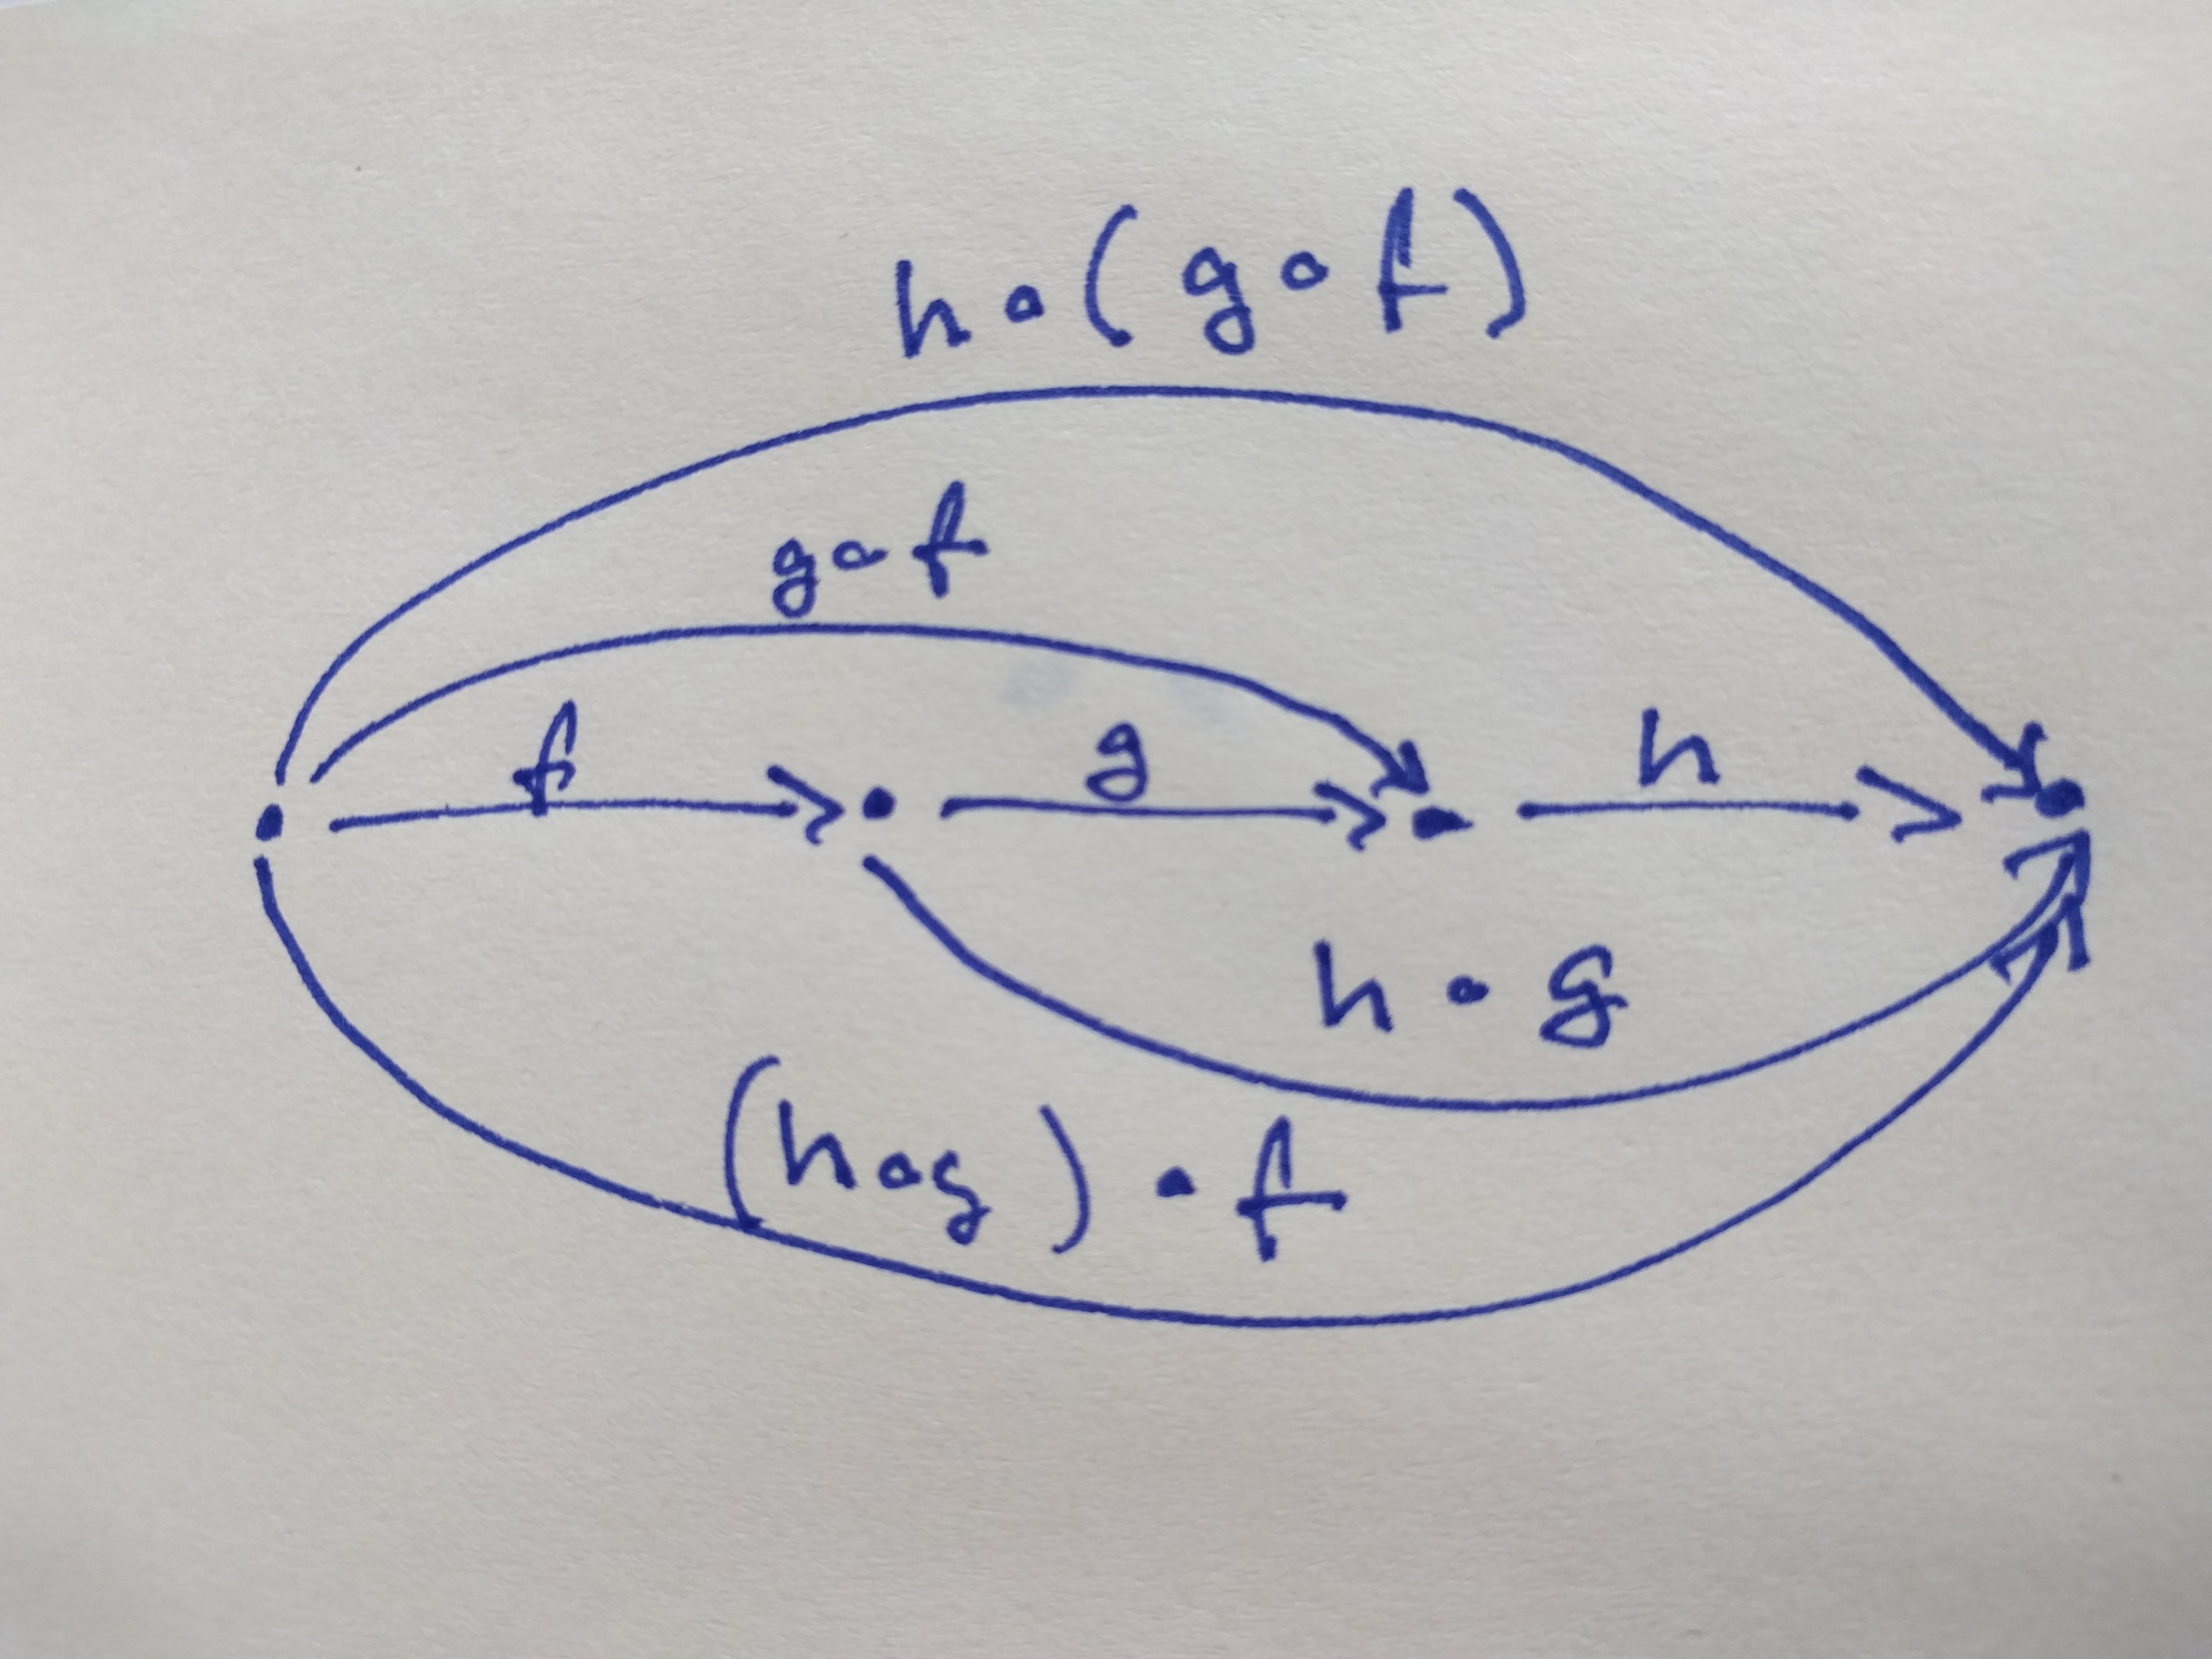 h∘(g∘f)
g∘f
f g h
h∘g
(h∘g)∘f